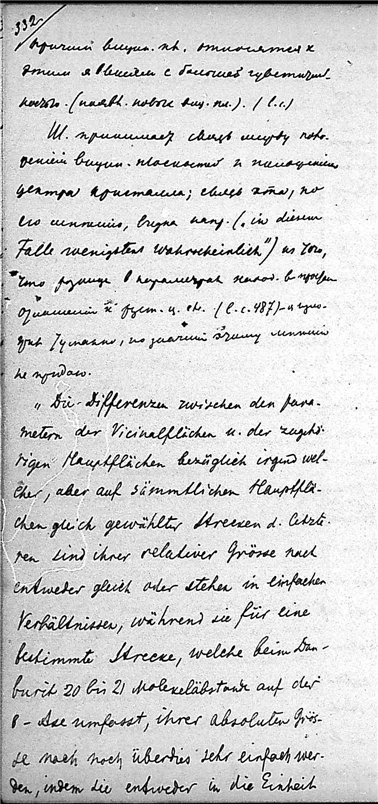 332
причин вицин. пл. относятся к
этим явлениям с большей чувствитель-
ностью. (появл. новых виц. пл.). (l.c.)
Ш. принимает связь между появ-
лением вицин. плоскостей и положением
центра кристалла; связь эта, по
его мнению, видна напр. („in diesem
Falle wenigstens wahrscheinlich") из того,
что разница в параметрах наход. в простых
отношениях к (l.c. 487) –
но значения этому мнению
не придаю.
„Die Differenzen zwischen den para-
metern der Vicinalflächen u. der zugehö-
rigen Hauptflächen bezüglich irgend wel-
cher, aber auf sämmtlichen Hauptflä-
chen gleich gewählter Strecken d. letzte-
ren sind ihrer relativer Grösse nach
entweder gleich oder stehen in einfachen
Verhältnissen, während sie für eine
bestimmte Strecke, welche beim Dan-
burit 20 bis 21 Molekelabstände auf der
Axe umfasst, ihrer absoluten Grös-
se nach noch überdies sehr einfach wer-
den, indem sie entweder in die Einheit